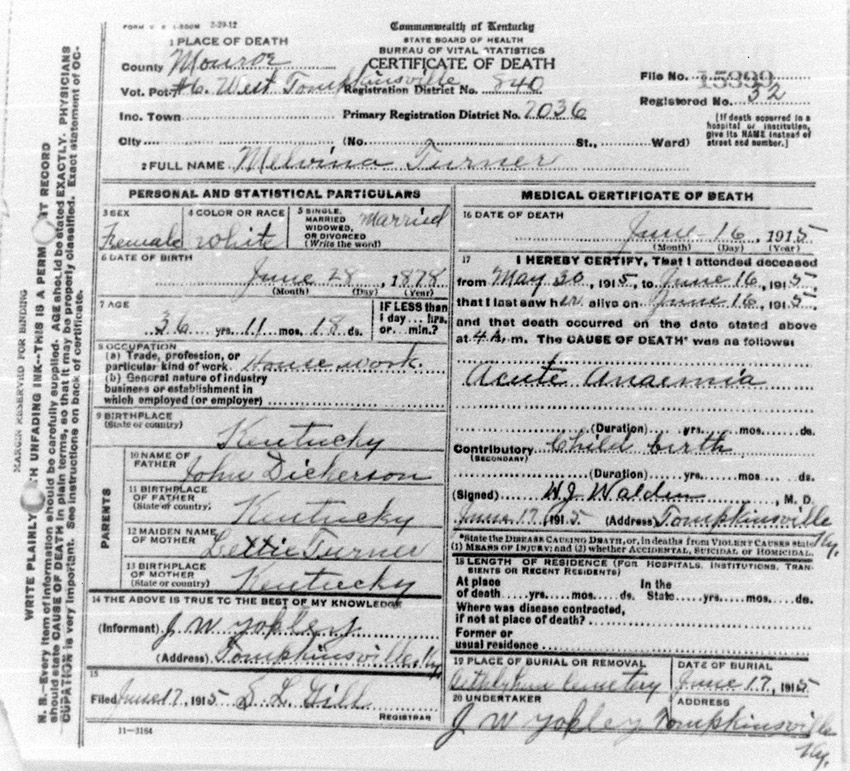 FORM V. S. 1-500M 2-29-12
Commonwealth of Kentucky
STATE BOARD OF HEALTH
BUREAU OF VITAL STATISTICS
CERTIFICATE OF DEATH
1 PLACE OF DEATH
County Monroe
Vot. Pct. #6. West Tompkinsville Registration District No. 840
File No. 15399
Registered No. 32
Inc. Town Primary Registration District No. 7036
[If death occurred in a hospital or institution, give its NAME instead of street and number.]
City (No. St., Ward)
2 FULL NAME Melvina Turner
PERSONAL AND STATISTICAL PARTICULARS
3 SEX Female
4 COLOR OR RACE white
5 SINGLE, MARRIED WIDOWED, OR DIVORCED (Write the word) Married
6 DATE OF BIRTH
June 28, 1878
(Month) (Day) (Year)
7 AGE
36 yrs. 11 mos. 18 ds.
IF LESS than 1 day... hrs. or... min.?
8 OCCUPATION
(a) Trade, profession, or
particular kind of work. House work
(b) General nature of industry
business or establishment in
which employed (or employer)
9 BIRTHPLACE
(State or country) Kentucky
PARENTS
10 NAME OF FATHER John Dickerson
11 BIRTHPLACE OF FATHER (State or country) Kentucky
12 MAIDEN NAME OF MOTHER Lettie Turner
13 BIRTHPLACE OF MOTHER (State or country) Kentucky
14 THE ABOVE IS TRUE TO THE BEST OF MY KNOWLEDGE
(Informant) J W
(Address) Tompkinsville Ky
15
Filed June 17, 1915 S. L. Gill
REGISTRAR
11-3184
MEDICAL CERTIFICATE OF DEATH
16 DATE OF DEATH
June 16, 1915
(Month) (Day) (Year)
17 I HEREBY CERTIFY, That I attended deceased
from May 30, 1915, to June 16, 1915,
that I last saw her alive on June 16, 1915,
and that death occurred on the date stated above
at 4 A. m. The CAUSE OF DEATH* was as follows:
Acute Anaemia
(Duration) yrs. mos. ds.
Contributory Child birth
(SECONDARY)
(Duration) yrs. mos ds.
(Signed) W. J. Walden, M. D.
June 17, 1915 (Address) Tompkinsville Ky.
*State the DISEASE CAUSING DEATH, or, in deaths from VIOLENT CAUSES state
(1) MEANS OF INJURY; and (2) whether ACCIDENTAL, SUICIDAL OR HOMICIDAL.
18 LENGTH OF RESIDENCE (FOR HOSPITALS, INSTITUTIONS, TRANSIENTS OR RECENT RESIDENTS)
At place In the
of death yrs. mos. ds. State yrs. mos. ds.
Where was disease contracted,
if not at place of death?
Former or
usual residence
19 PLACE OF BURIAL OR REMOVAL
Cemetery
DATE OF BURIAL
June 17, 1915
20 UNDERTAKER
J W
ADDRESS
Tompkinsville Ky.
MARGIN RESERVED FOR BINDING
WRITE PLAINLY UNFADING INK--THIS IS A PERM T RECORD
N. B.--Every item of information should be carefully supplied. AGE should be stated EXACTLY. PHYSICIANS
should state CAUSE OF DEATH in plain terms, so that it may be properly classified. Exact statement of OC-
CUPATION is very important. See instructions on back of certificate.